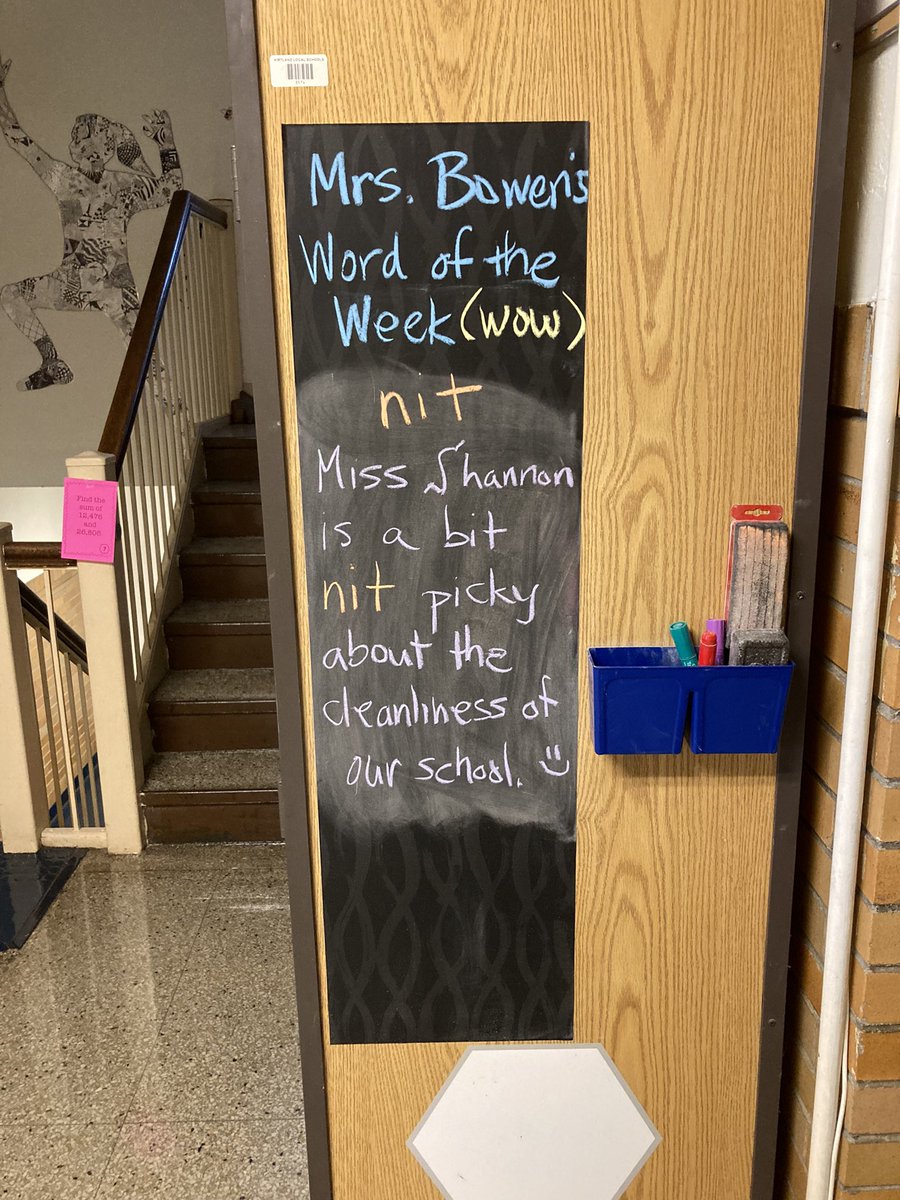 KIRTLAND LOCAL SCHOOLS
Mrs. Bowen's
Word of the
Week (WOW)
nit
Miss Shannon
is a bit
nit picky
about the
cleanliness of
our school.
Find the
sum of
12,476
and
26,805.
7